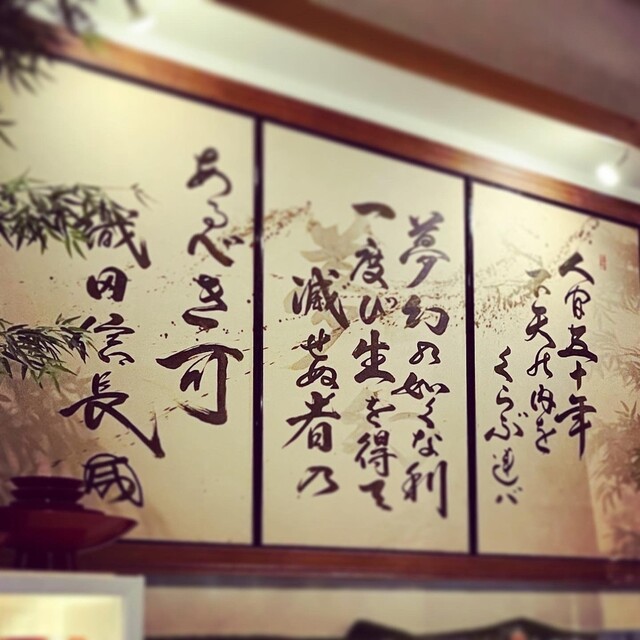 人間五十年
下天の内を
くらぶ連バ
夢幻の如くな利
一度び生を得て
滅せぬ者の
あるべき可
織田信長